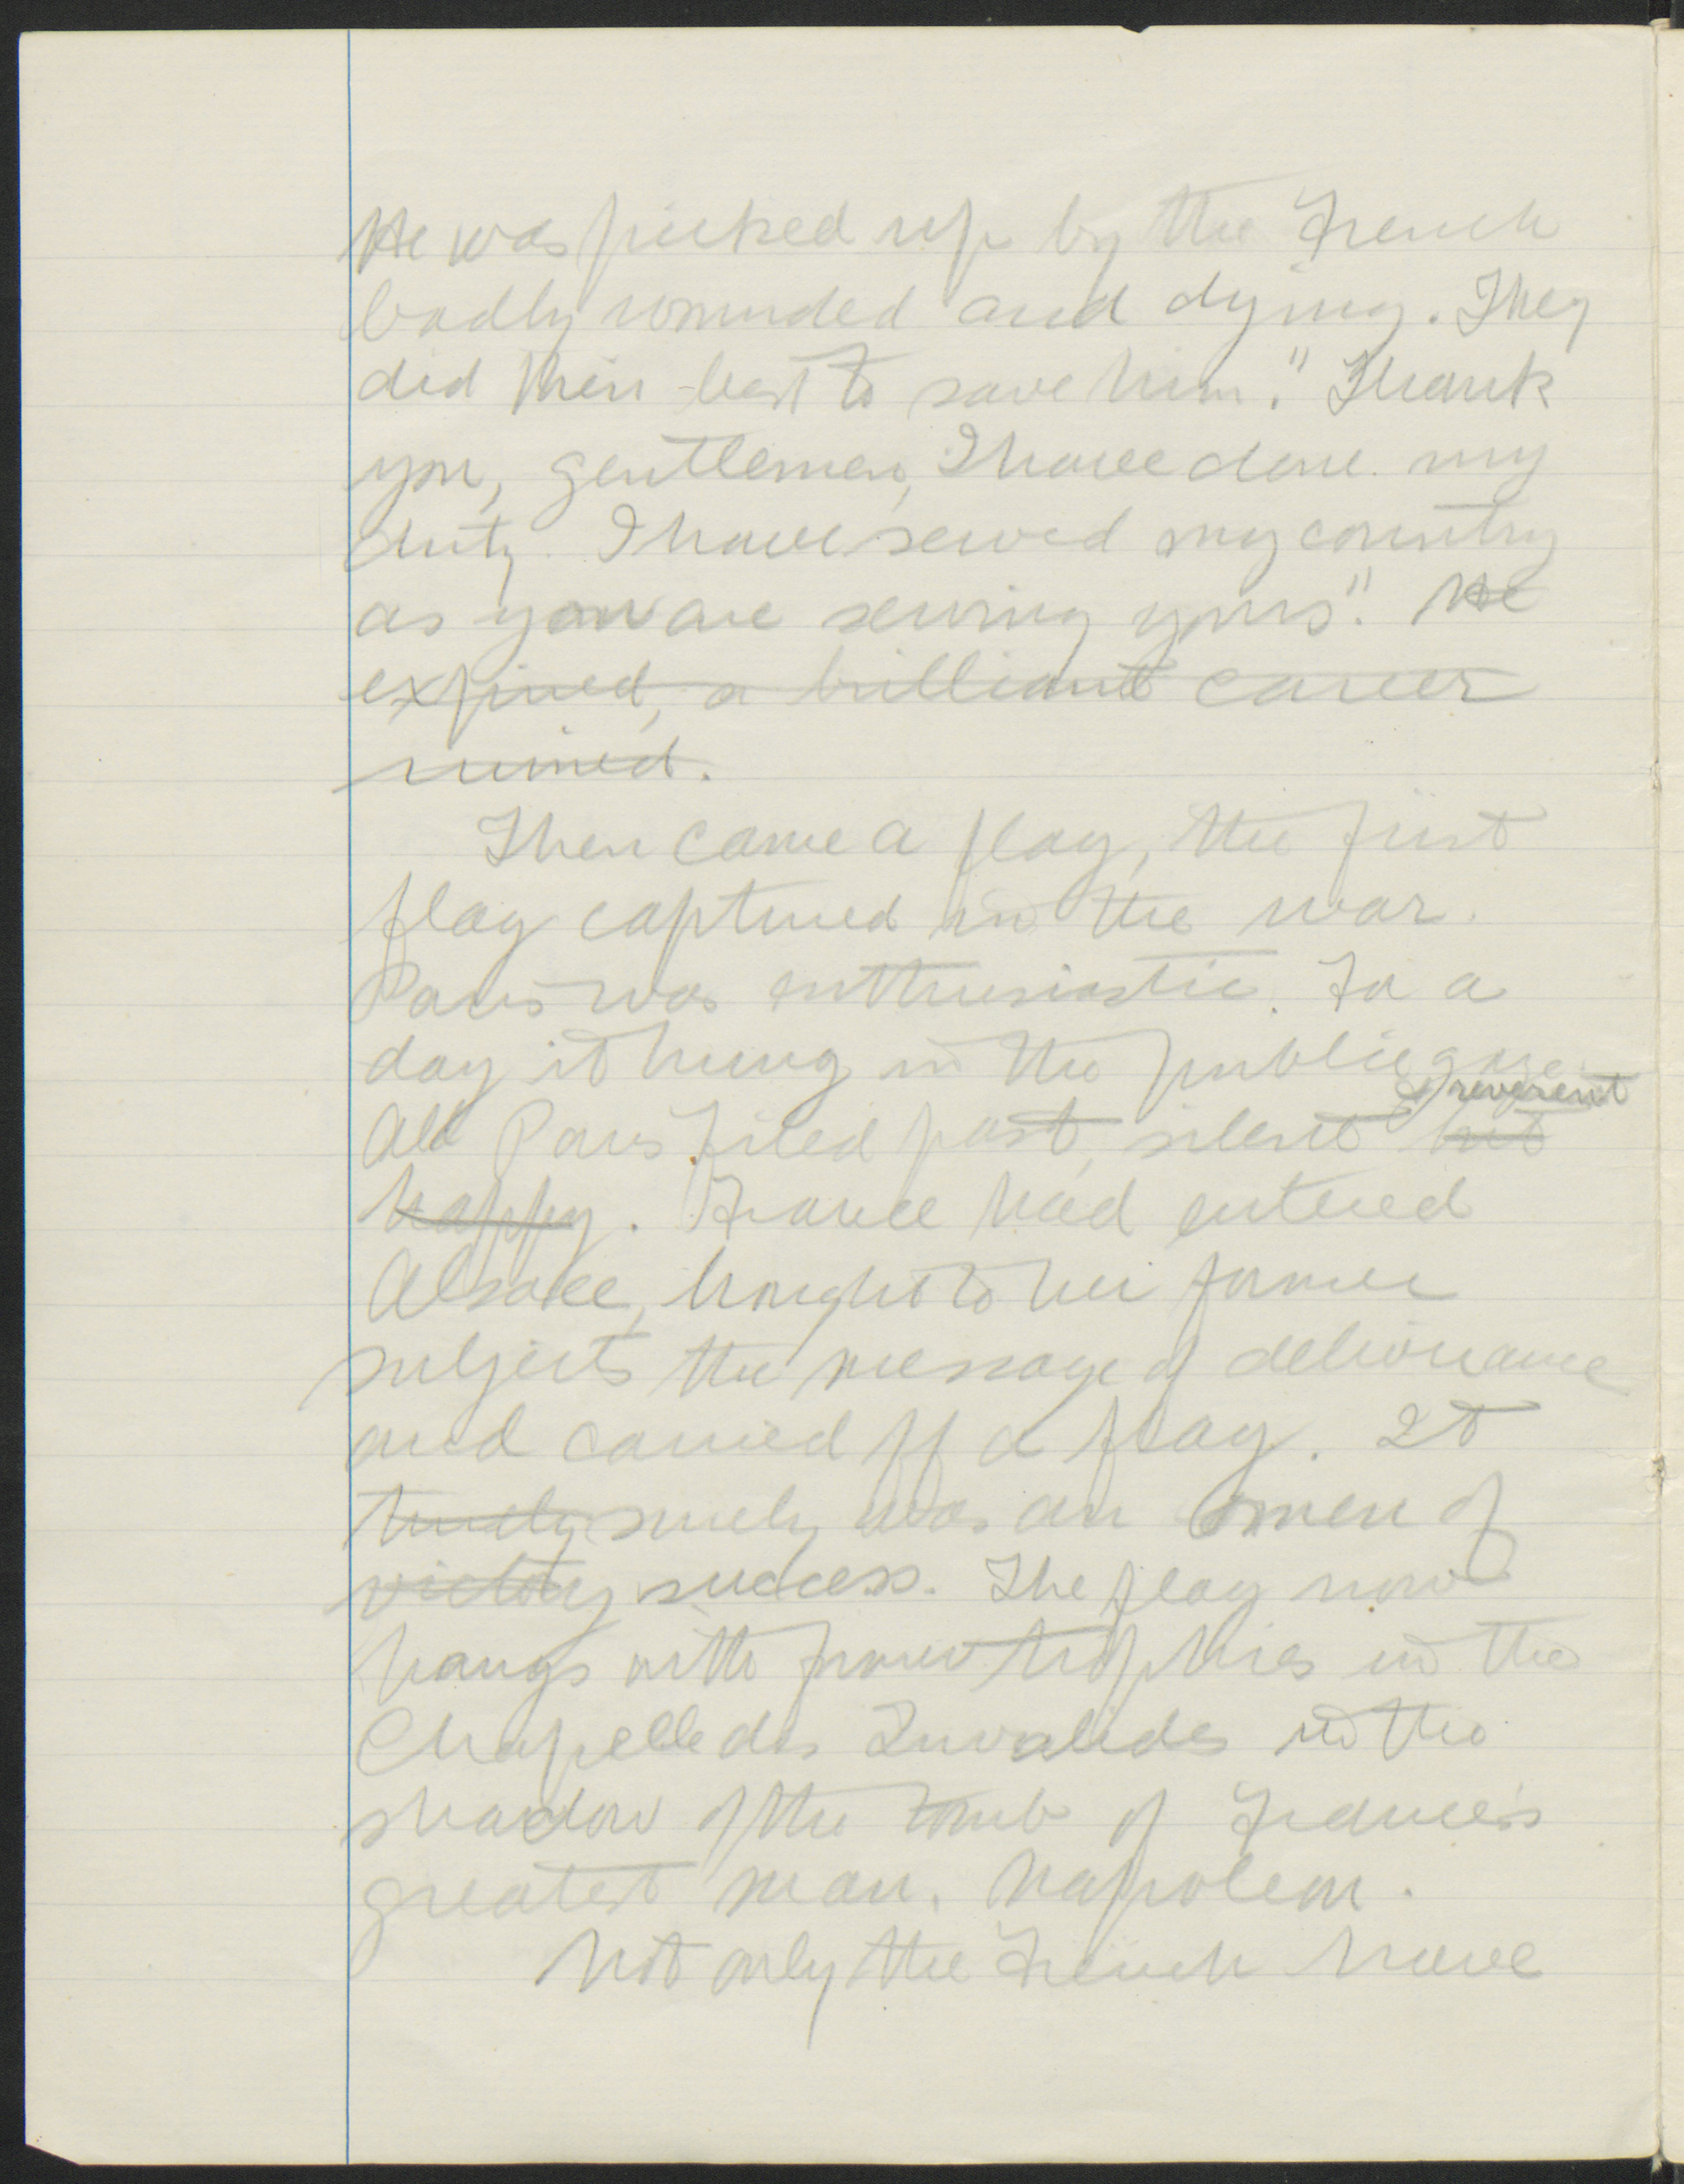 He was picked up by the French
badly wounded and dying. They
did their best to save him. "Thank
you, gentlemen, I have done my
duty. I have served my country
as you are serving yours". He
expired, a brilliant career
ruined.
Then came a flag, the first
flag captured in the war.
Paris was enthusiastic. For a
day it hung in the public gaze.
& reverent
All Paris filed past, silent but
happy. France had entered
Alsace, brought to her former
subjects the message of deliverance
and carried off a flag. It
truely surely was an omen of
victory success. The flag now
hangs with former trophies in the
Chapelle des Invalides in the
shadow of the tomb of France's
greatest man, Napoleon.
Not only the French have